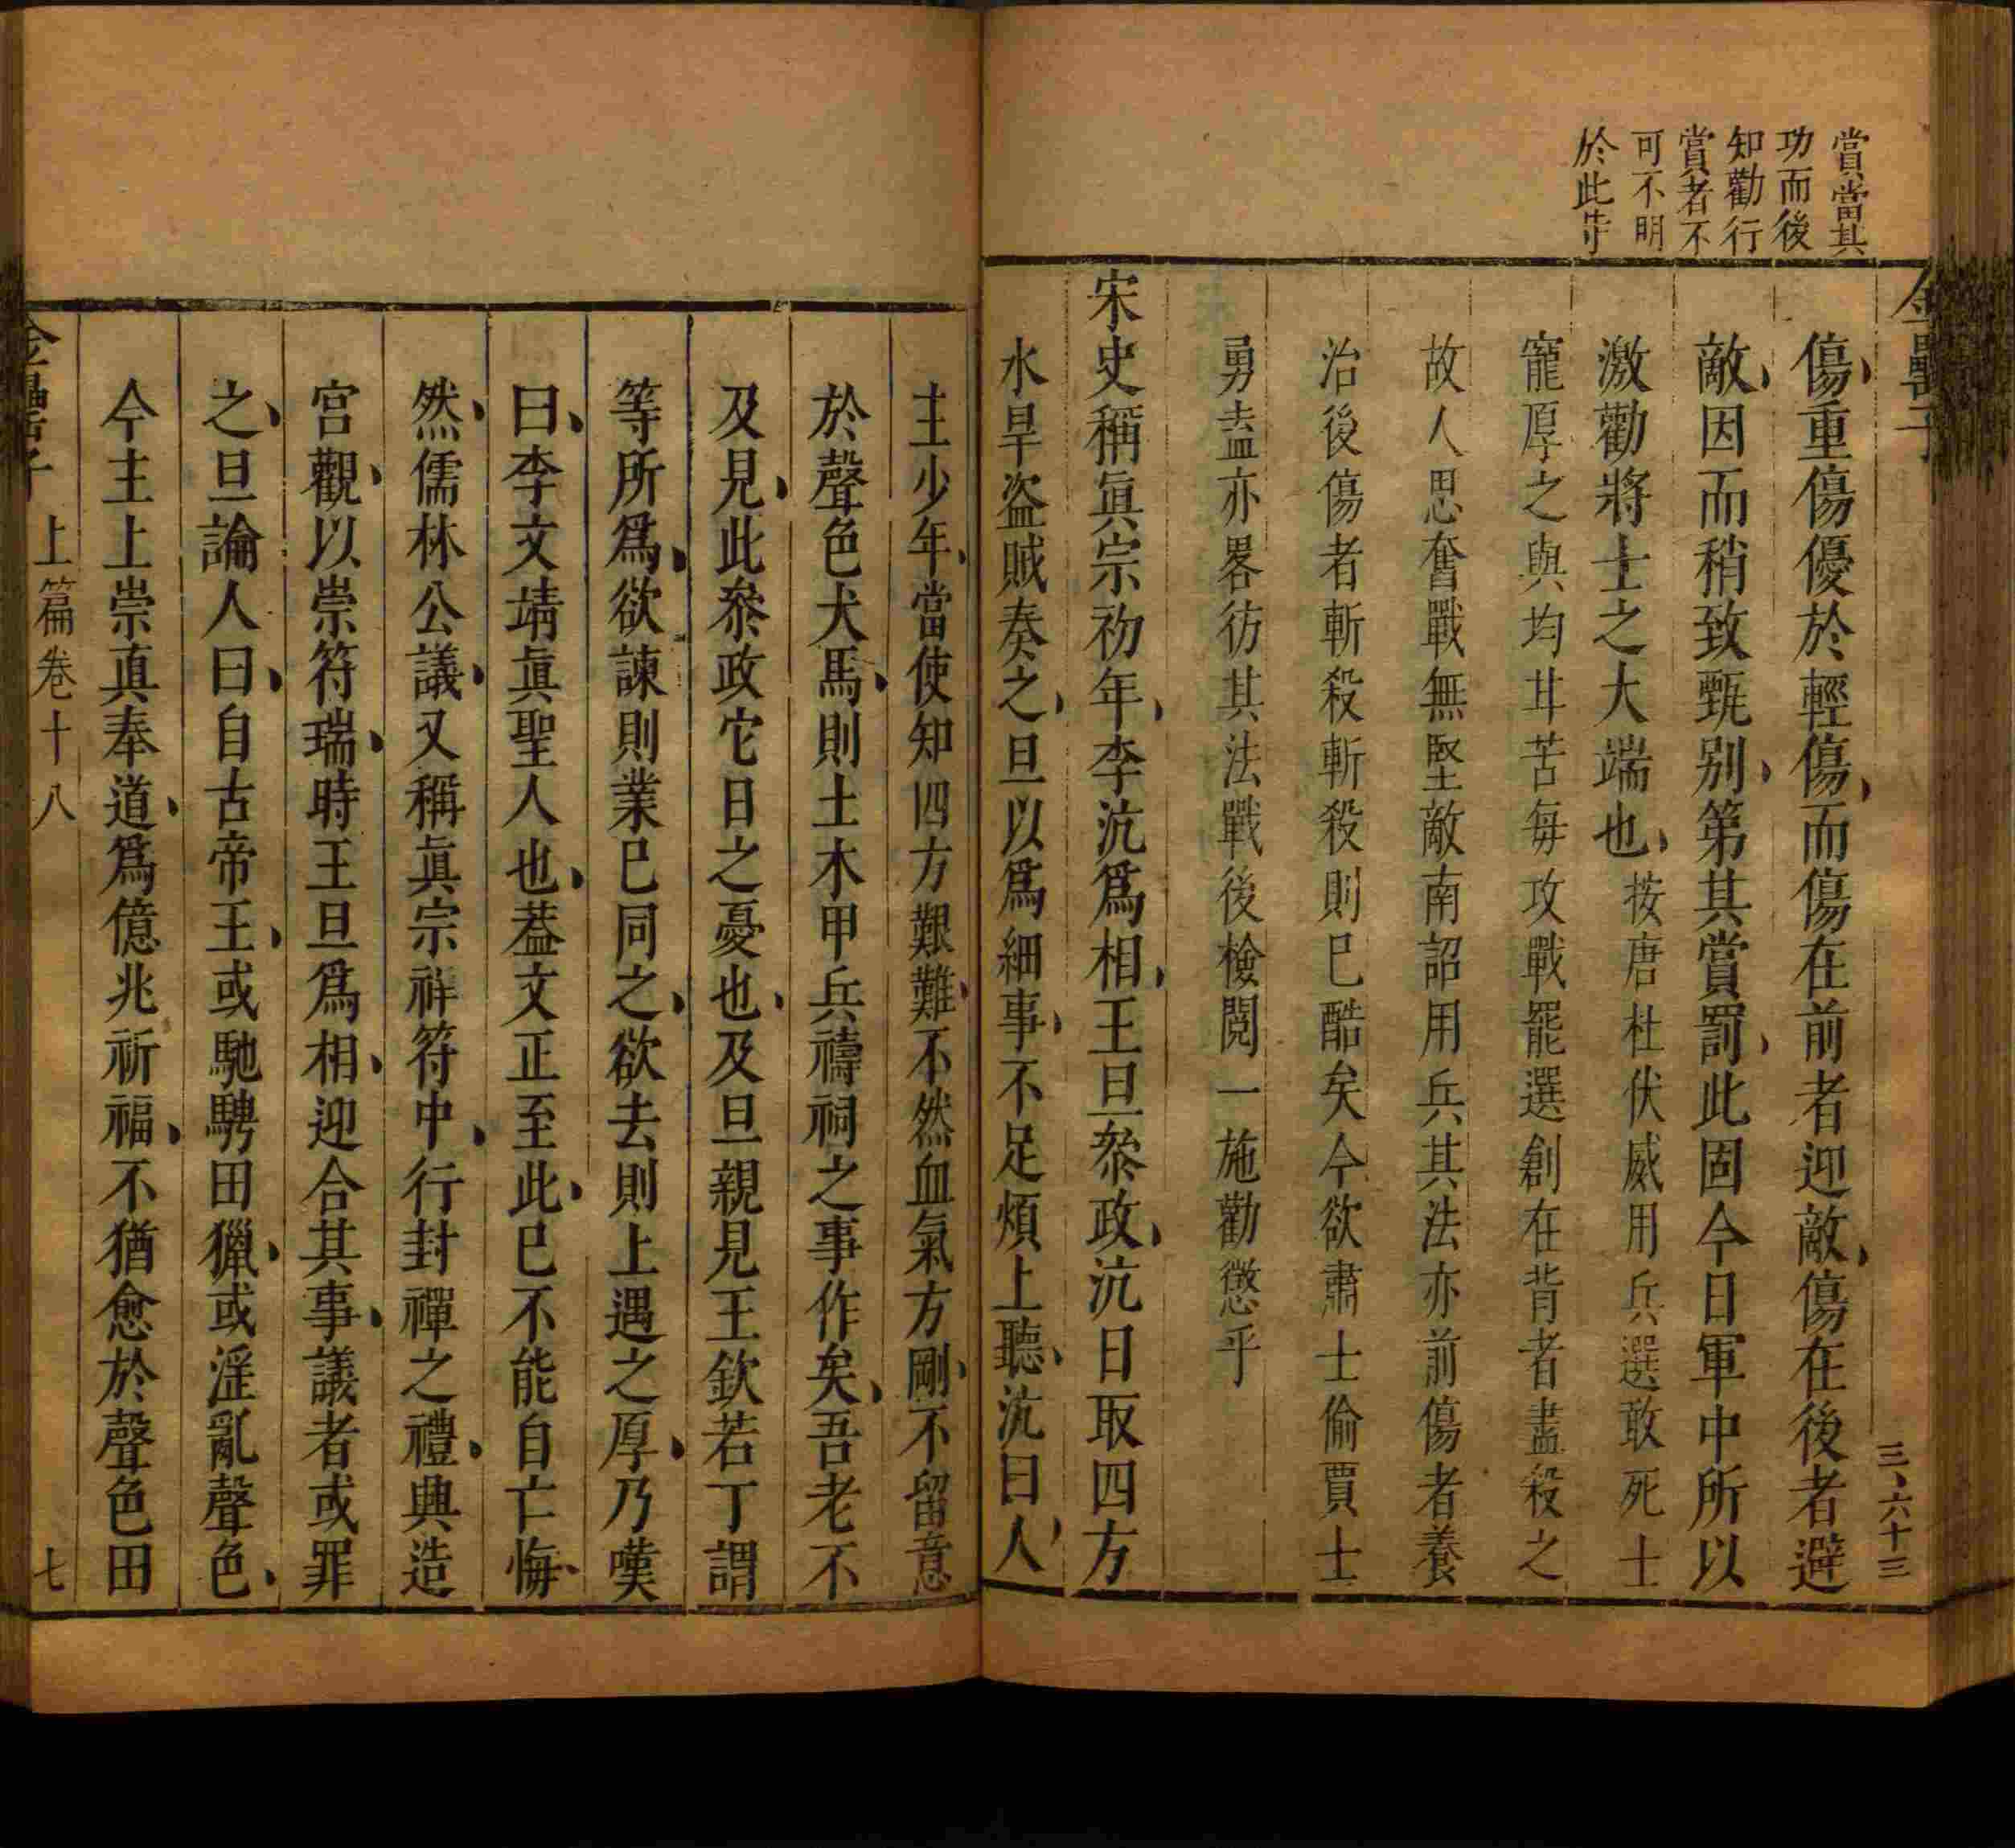 賞當其
功而後
知勸行
賞者不
可不明
於此時
金罍子
三、六十三
傷、重傷優於輕傷、而傷在前者迎敵、傷在後者避
敵、因而稍致甄别、第其賞罰、此固今日軍中所以
激勸將士之大端也、按唐杜伏威用兵選敢死士
寵厚之與均甘苦每攻戰罷選創在背者盡殺之
故人思奮戰無堅敵南詔用兵其法亦前傷者養
治後傷者斬殺斬殺則已酷矣今欲肅士偷賈士
勇盍亦畧彷其法戰後檢閱一施勸懲乎
宋史稱眞宗初年、李沆爲相、王旦叅政、沆日取四方
水旱盗賊奏之、旦以爲細事、不足煩上聽、沆曰、人
主少年、當使知四方艱難、不然血氣方剛、不留意
於聲色犬馬、則土木甲兵禱祠之事作矣、吾老不
及見、此叅政它日之憂也、及旦親見王欽若丁謂
等所爲、欲諫則業已同之、欲去則上遇之厚、乃嘆
曰、李文靖眞聖人也、葢文正至此、已不能自亡悔、
然、儒林公議、又稱眞宗祥符中、行封禪之禮、興造
宫觀、以崇符瑞、時王旦爲相、迎合其事、議者或罪
之、旦論人曰、自古帝王、或馳騁田獵、或淫亂聲色、
今主上崇真奉道、爲億兆祈福、不猶愈於聲色田
金罍子 上篇卷十八 七